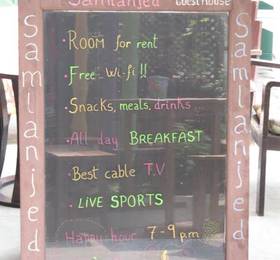 Samlanjed Guesthouse
• ROOM for rent
• Free Wi-fi!!
• Snacks, meals, drinks...
• All day BREAKFAST
• Best cable T.V
• LiVE SPORTS
Happy hour 7-9 pm
Samlanjed
Samlanjed